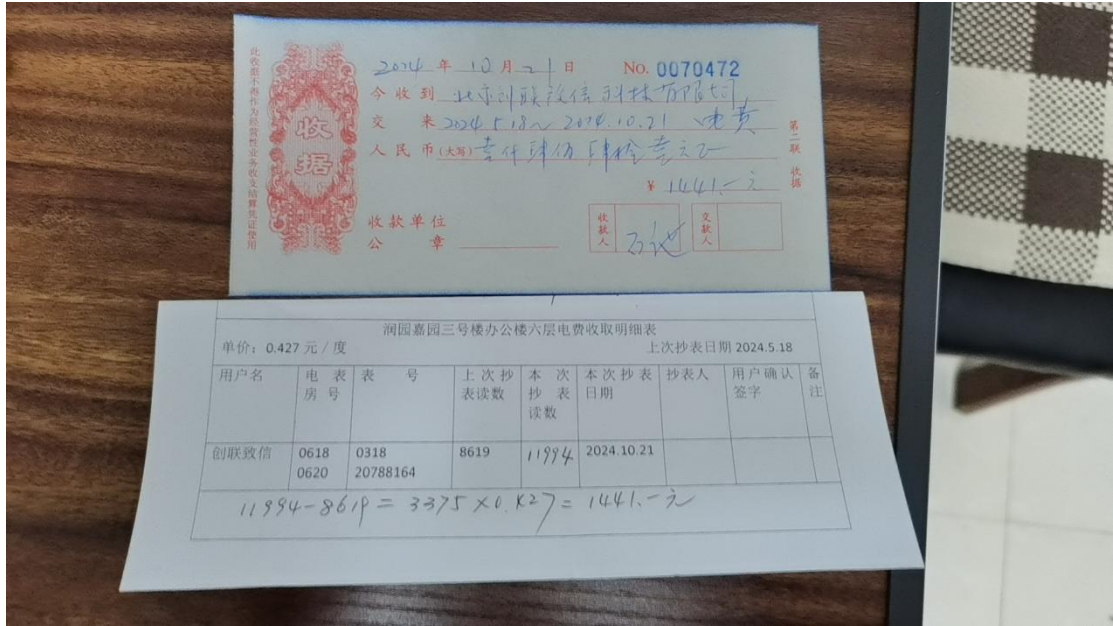 此收据不得作为经营性业务收支结算凭证使用
收据
2024 年 10 月 21 日 No. 0070472
今收到 北京创联致信科技有限公司
交来 2024 5.18~2024.10.21 电费
人民币(大写) 壹仟肆佰肆拾壹元正
¥ 1441.-元
收款单位
公章
收款人
交款人
第二联 收据
润园嘉园三号楼办公楼六层电费收取明细表
单价: 0.427 元 / 度 上次抄表日期 2024.5.18
用户名 电表房号 表号 上次抄表读数 本次抄表读数 本次抄表日期 抄表人 用户确认签字 备注
创联致信 0618 0318 8619 11994 2024.10.21
0620 20788164
11994-8619=3375×0.427=1441.-元